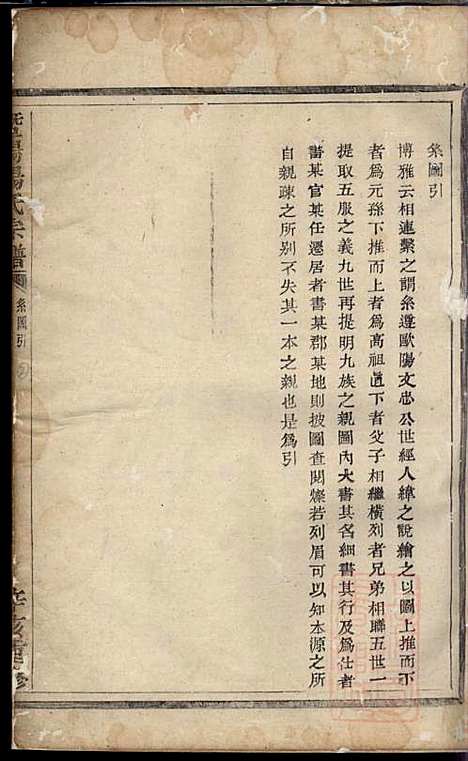 系圖引
博雅云相連繫之謂系遵歐陽文忠公世經人緯之說繪之以圖上推而下
者為元孫下推而上者為高祖直下者父子相繼橫列者兄弟相聯五世一
提取五服之義九世再提明九族之親圖內大書其名細書其行及為仕者
書某官某任遷居者書某郡某地則披圖查閱燦若列眉可以知本源之所
自親疎之所別不失其一本之親也是為引
陽湯氏宗譜
系圖引
辛亥重修